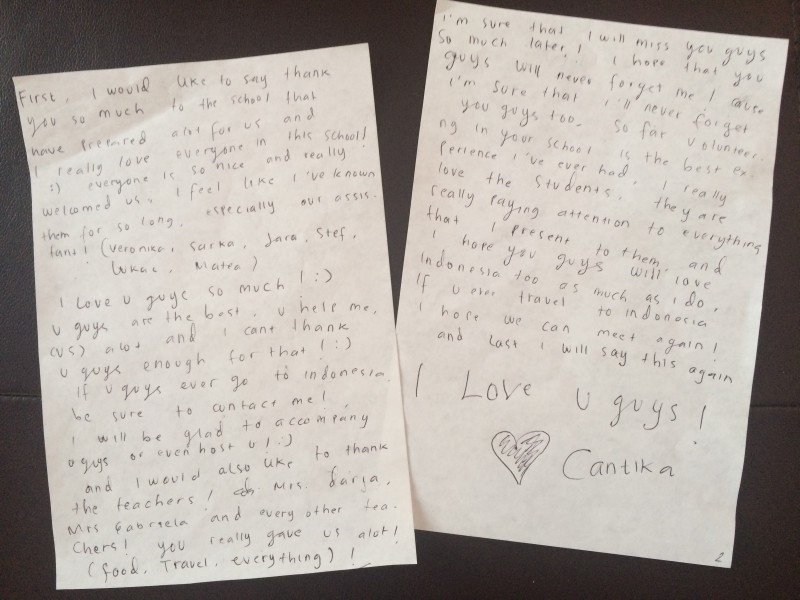 First, I would like to say thank
you so much to the school that
have prepared alot for us and
I really love everyone in this school!
:) everyone is so nice and really
welcomed us, I feel like I've known
them for so long. especially our assis-
tant! (Veronika, Sarka, Jara, Stef,
Lukac, Matea)
I Love u guys so much ! :)
u guys are the best. u help me,
(us) alot and I cant thank
u guys enough for that ! :)
If u guys ever go to Indonesia
be sure to contact me!
I will be glad to accompany
u guys or even host u ! :)
and I would also like to thank
the teachers! Mrs. Darja,
Mrs Gabriela and every other tea-
chers! you really gave us alot!
(food, Travel, everything) !
I'm sure that I will miss you guys
so much later! I hope that you
guys will never forget me! cause
I'm sure that I'll never forget
you guys too. So far volunteer-
ng in your school is the best ex-
perience I've ever had. I really
love the students, they are
really paying attention to everything
that I present to them, and
I hope you guys will love
Indonesia too as much as I do.
If u ever travel to indonesia
I hope we can meet again!
and last I will say this again
I Love u guys!
Cantika
2